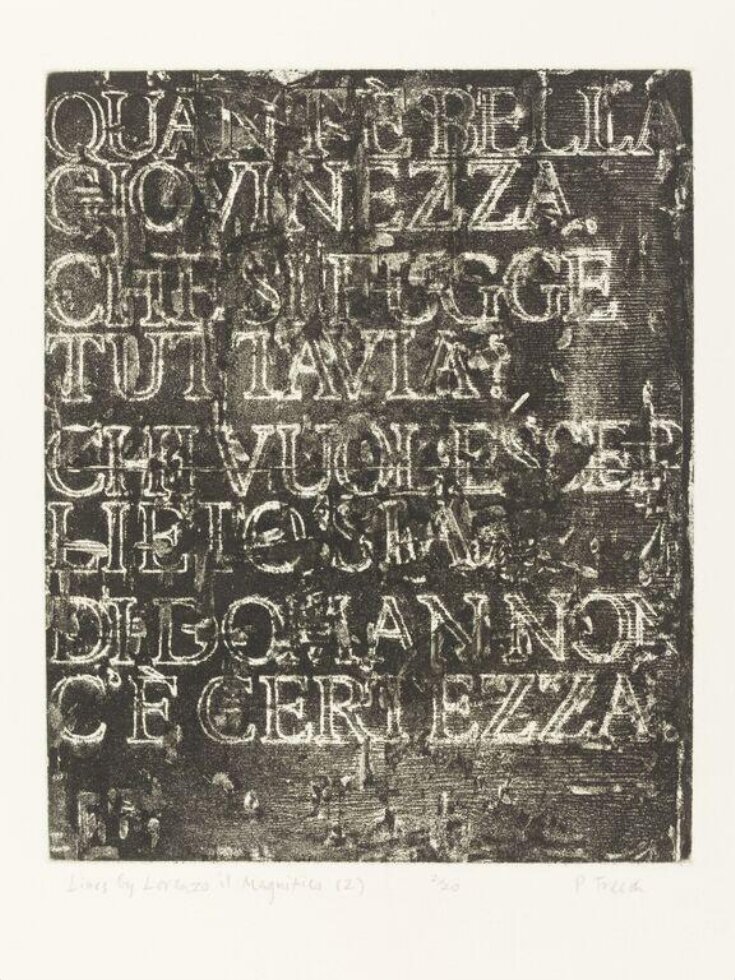 QUANT'È BELLA
GIOVINEZZA
CHE SI FUGGE
TUTTAVIA:
CHI VUOL ESSER
LIETO SIA,
DI DOMAN NON
C'È CERTEZZA
Lines by Lorenzo il Magnifico (2) 2/20